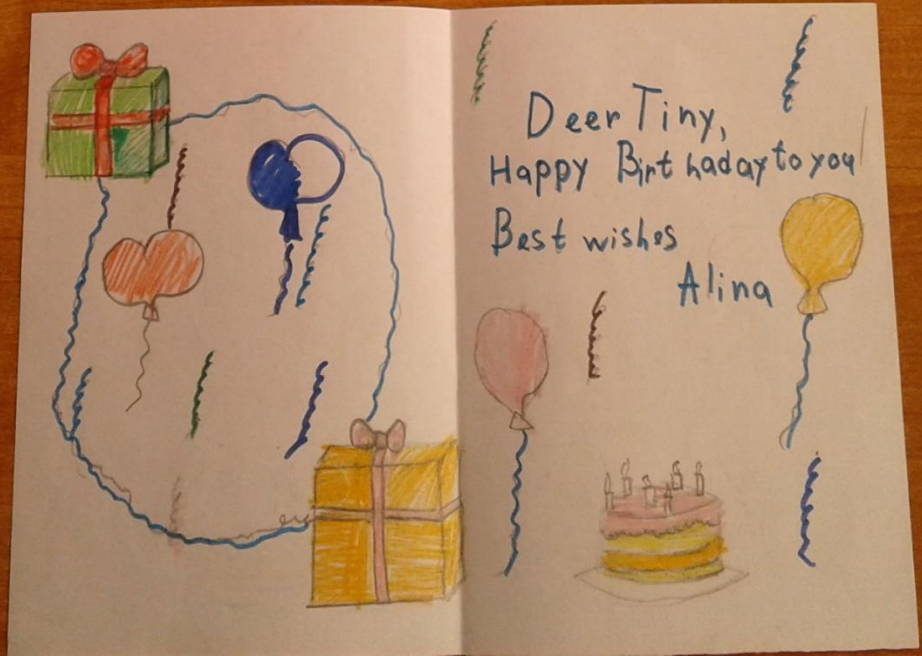 Deer Tiny,
Happy Birt haday to you
Best wishes
Alina